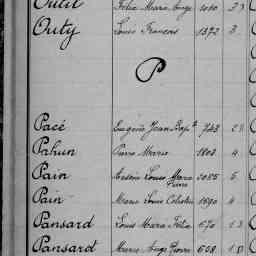 Outil Félix Marie Ange 1080 23
Outy Louis François 1372 3
P
Pacé Eugène Jean Bapt 743 23
Pahun Pierre Marie 1803 4
Pain Louis Marie Pierre 2085 5
Pain Marie Louis Célestin 1690 4
Pansard Louis Marie 670 13
Pansard Marie Ange Pierre 608 13